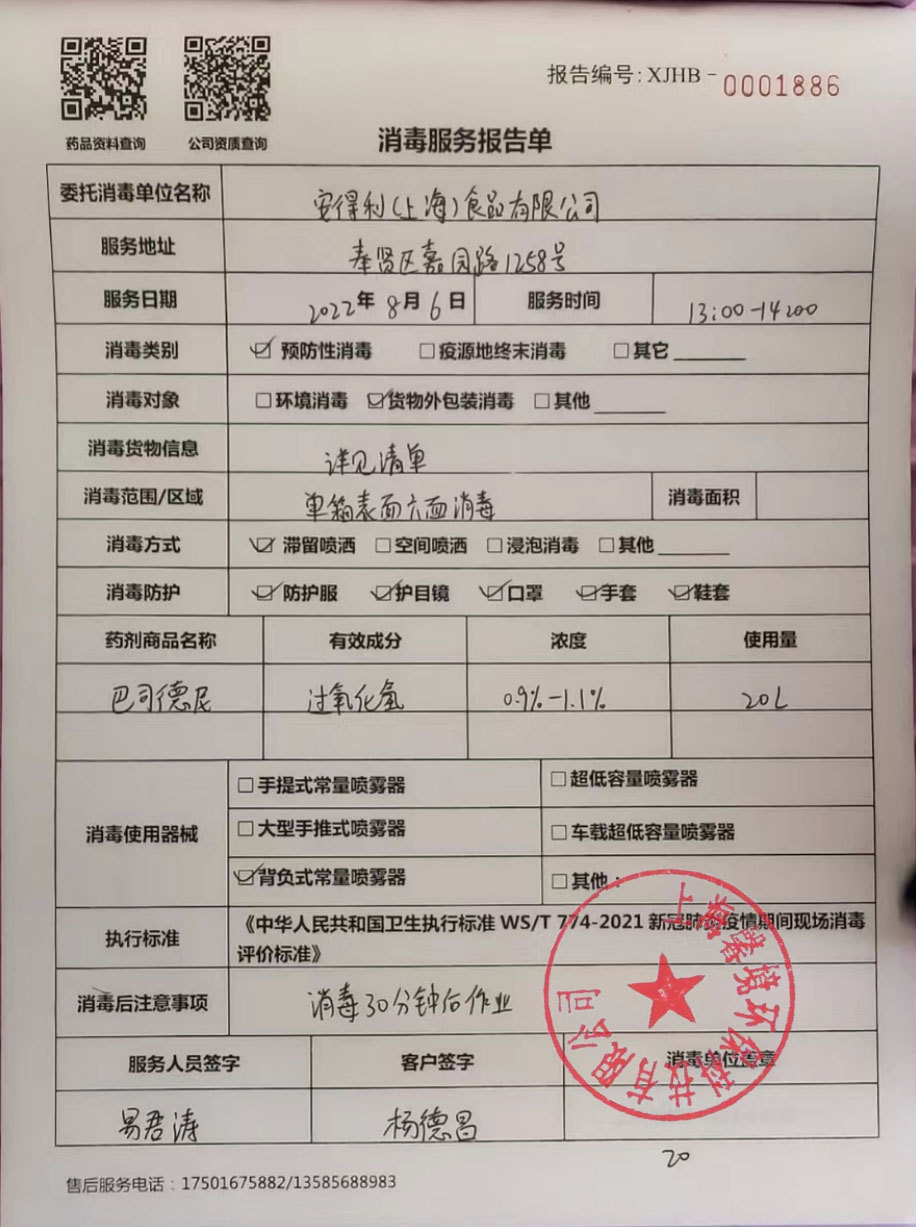 报告编号：XJHB-0001886
药品资料查询 公司资质查询
消毒服务报告单
委托消毒单位名称 安得利(上海)食品有限公司
服务地址 奉贤区嘉园路1258号
服务日期 2022年8月6日 服务时间 13:00-14:00
消毒类别 ☑预防性消毒 □疫源地终末消毒 □其它______
消毒对象 □环境消毒 ☑货物外包装消毒 □其他______
消毒货物信息 详见清单
消毒范围/区域 单箱表面六面消毒 消毒面积
消毒方式 ☑滞留喷洒 □空间喷洒 □浸泡消毒 □其他______
消毒防护 ☑防护服 ☑护目镜 ☑口罩 ☑手套 ☑鞋套
药剂商品名称 有效成分 浓度 使用量
巴司德尼 过氧化氢 0.9%-1.1% 20L
消毒使用器械
□手提式常量喷雾器 □超低容量喷雾器
□大型手推式喷雾器 □车载超低容量喷雾器
☑背负式常量喷雾器 □其他：
执行标准 《中华人民共和国卫生执行标准 WS/T 774-2021 新冠肺炎疫情期间现场消毒
评价标准》
消毒后注意事项 消毒30分钟后作业
服务人员签字 客户签字 消毒单位盖章
易君涛 杨德昌
上海馨境环保科技有限公司
20
售后服务电话：17501675882/13585688983